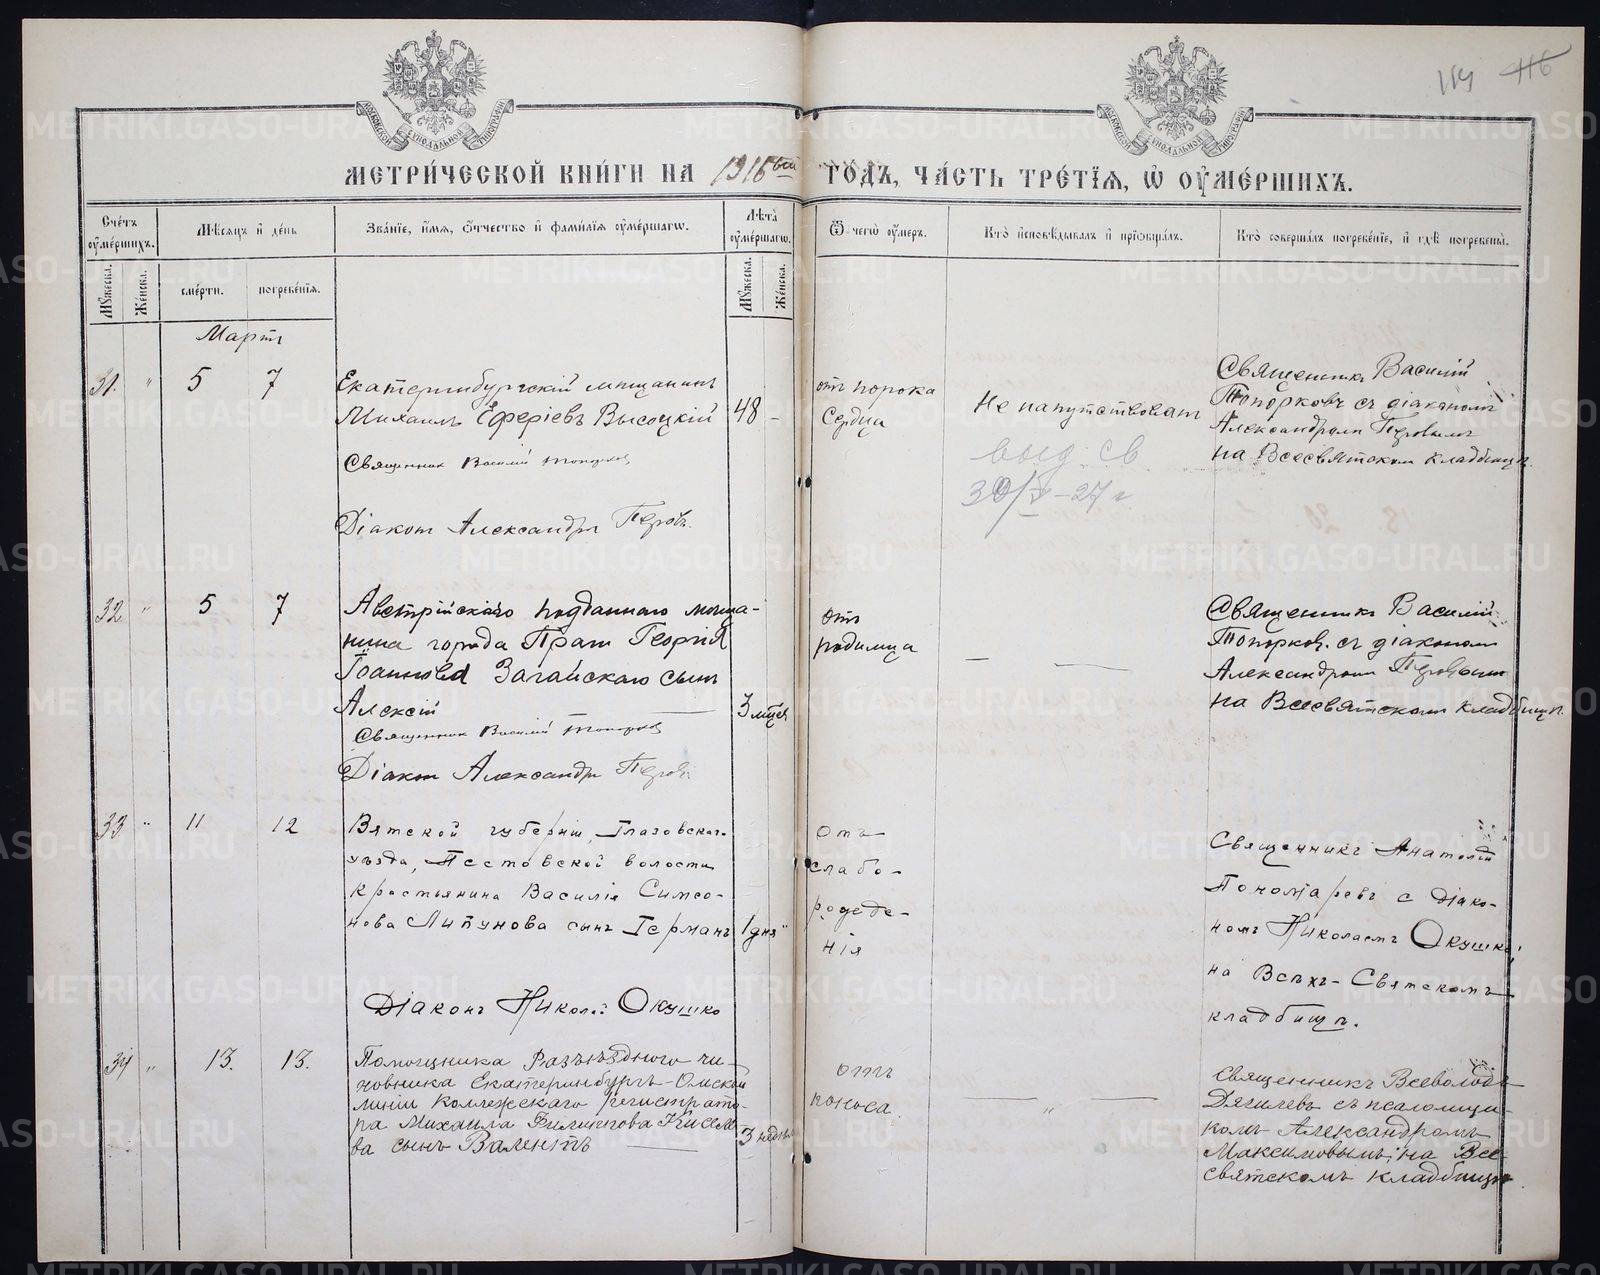 114 116
МОСКОВСКОЙ СѴНОДАЛЬНОЙ ТИПОГРАФІИ
МОСКОВСКОЙ СѴНОДАЛЬНОЙ ТИПОГРАФІИ
МЕТРИ́ЧЕСКОЙ КНИ́ГИ НА 1916ый ГО́ДЪ, ЧА́СТЬ ТРЕ́ТІѦ, Ѡ ОУМЕ́РШИХЪ.
Сче́тъ оумершихъ.
Мѣсяцъ и́ де́нь
Зва́ніе, и́мя, о́тчество и́ фами́лія оуме́ршагѡ.
Лѣта̀ оуме́ршагѡ.
Ѿ чегѡ̀ оу́меръ.
Кто̀ исповѣ́дывалъ и́ прїѡбща́лъ.
Кто̀ соверша́лъ погребе́ніе, и́ гдѣ̀ погребены̀.
Мꙋжеска. Же́нска.
сме́рти. погребе́нія.
Мꙋжеска. Же́нска.
Мартъ
31. " 5 7
Екатеринбургскій мѣщанинъ
Михаилъ Ефреміевъ Высоцкій 48 –
Священник Василій Топорков
Діакон Александръ Перовъ.
отъ порока
сердца
Не напутствован
выд. св
30/V-27 г
Священникъ Василій
Топорковъ съ діакономъ
Александромъ Перовымъ
на Всесвятском кладбищѣ.
32 " 5 7
Австрійскаго подданнаго мѣща-
нина города Праги Георгія
Іоаннова Загайскаго сынъ
Алексій 3 мѣся
Священник Василій Топорков
Діакон Александръ Перовъ
отъ
родимца
– –
Священникъ Василій
Топорков. съ діаконом
Александромъ Перовымъ
на Всесвятском кладбищѣ.
33 " 11 12
Вятской губерніи, Глазовскаго
уѣзда, Пестовской волости
крестьянина Василія Симео-
нова Липунова сынъ Германъ 1 дня"
Діаконъ Николай Окушко
Отъ
слабо-
рожде-
нія
Священникъ Анатолій
Пономаревъ с Діако-
номъ Николаемъ Окушко,
на Всѣхъ-Святскомъ
кладбищѣ.
34 " 13. 13.
Помощника Разъѣзднаго чи-
новника Екатеринбургъ-Омской
линіи коллежскаго регистрато-
ра Михаила Филиппова Киселе-
ва сынъ Валентъ 3 недѣль
отъ
поноса.
"
Священникъ Всеволодъ
Дягилевъ съ псаломщи-
комъ Александромъ
Максимовымъ; на Все-
святскомъ кладбищѣ.
METRIKI.GASO-URAL.RU